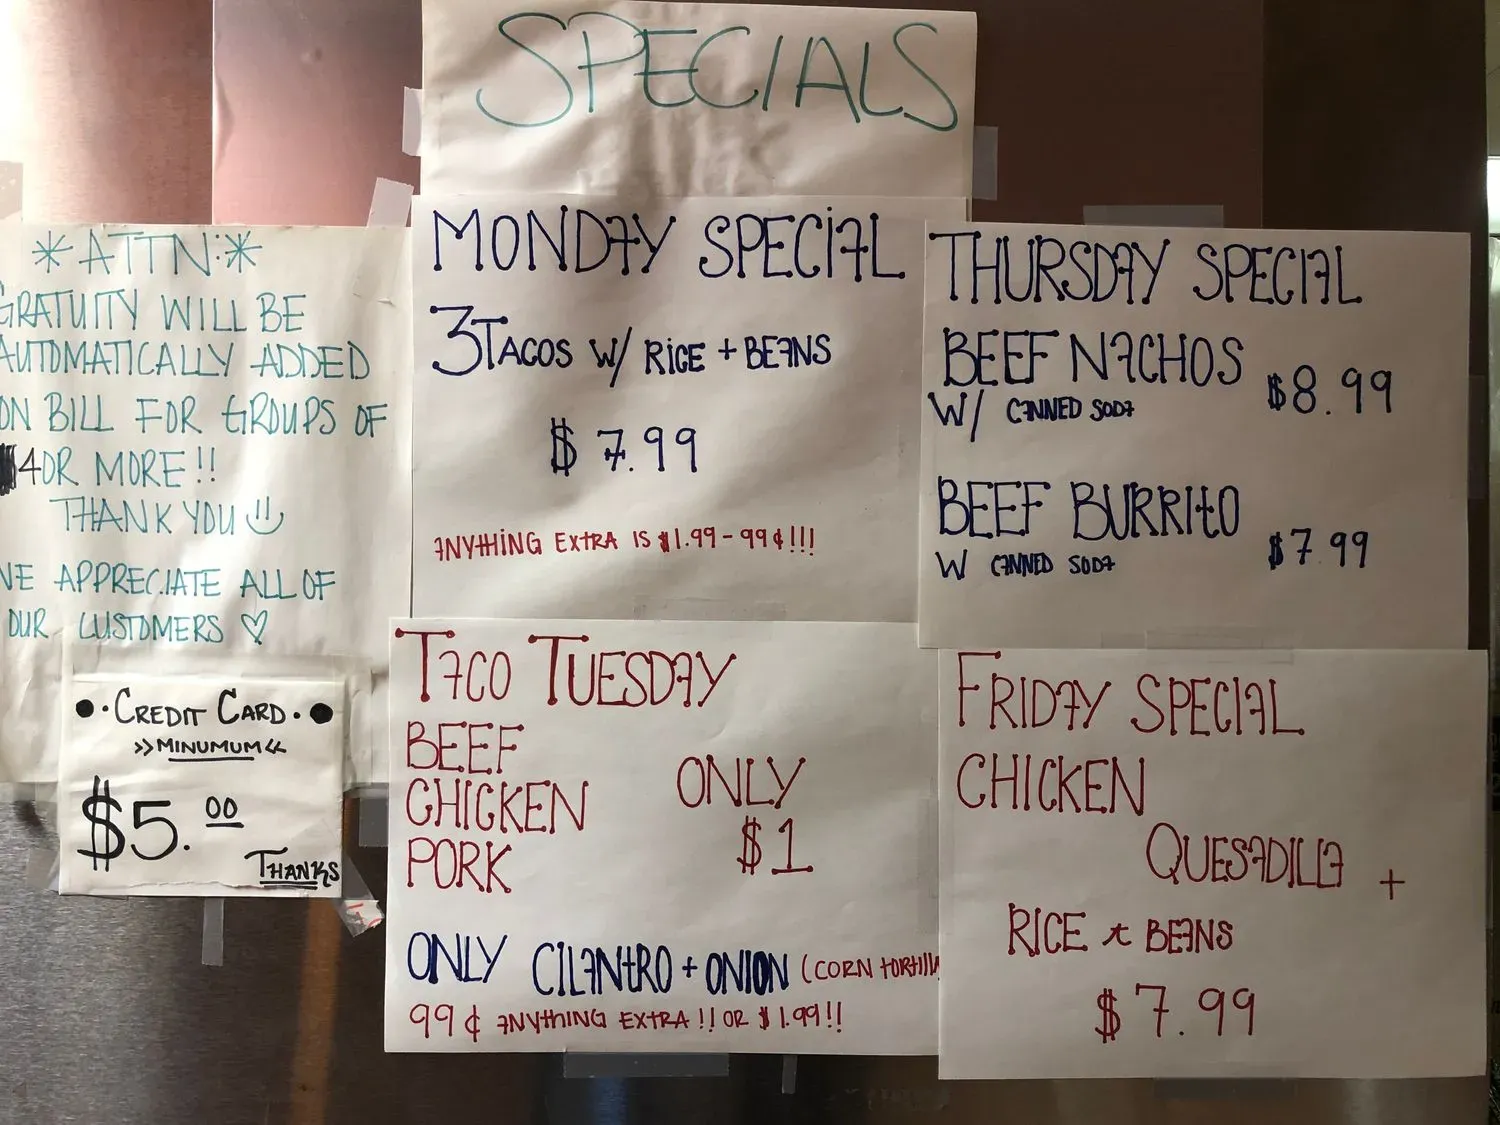 SPECIALS
*ATTN:*
GRATUITY WILL BE
AUTOMATICALLY ADDED
ON BILL FOR GROUPS OF
4 OR MORE!!
THANK YOU
WE APPRECIATE ALL OF
OUR CUSTOMERS ♡
• · CREDIT CARD · •
>> MINUMUM <<
$5.00
THANKS
MONDAY SPECIAL
3 TACOS W/ RICE + BEANS
$ 7.99
ANYTHING EXTRA IS $1.99 - 99¢!!!
TACO TUESDAY
BEEF
CHICKEN
PORK
ONLY
$1
ONLY CILANTRO + ONION (CORN TORTILLA
99¢ ANYTHING EXTRA!! OR $1.99!!
THURSDAY SPECIAL
BEEF NACHOS
W/ CANNED SODA
$8.99
BEEF BURRITO
W CANNED SODA
$7.99
FRIDAY SPECIAL
CHICKEN
QUESADILLA +
RICE + BEANS
$7.99